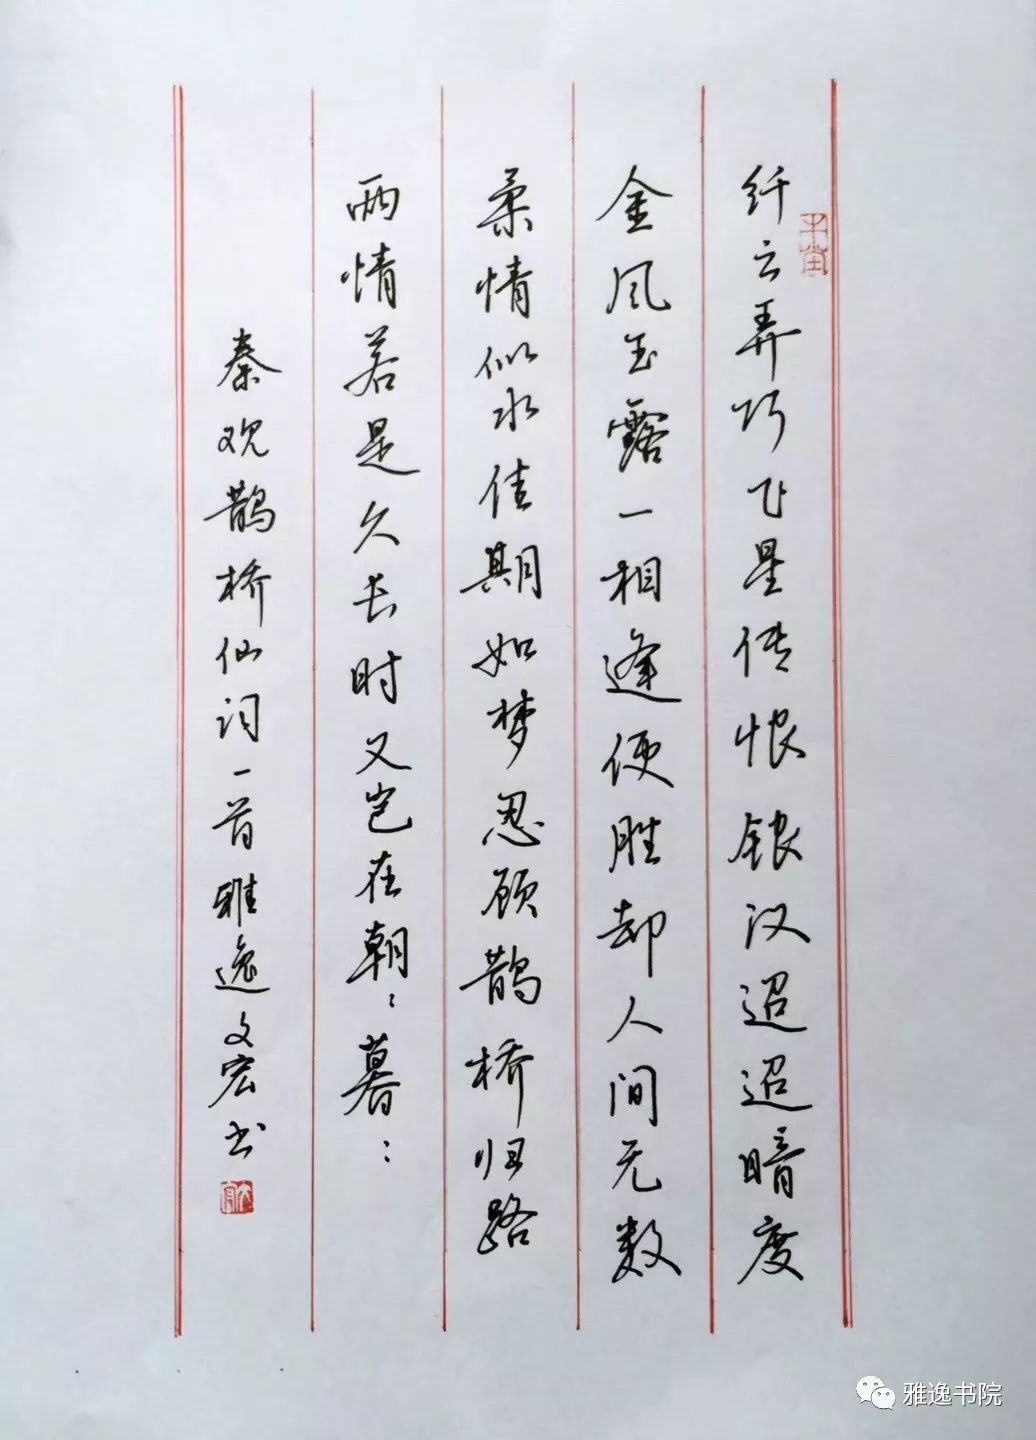 纤云弄巧飞星传恨银汉迢迢暗度
金风玉露一相逢便胜却人间无数
柔情似水佳期如梦忍顾鹊桥归路
两情若是久长时又岂在朝:暮:
秦观鹊桥仙词一首雅逸文宏书
文宏
雅逸书院